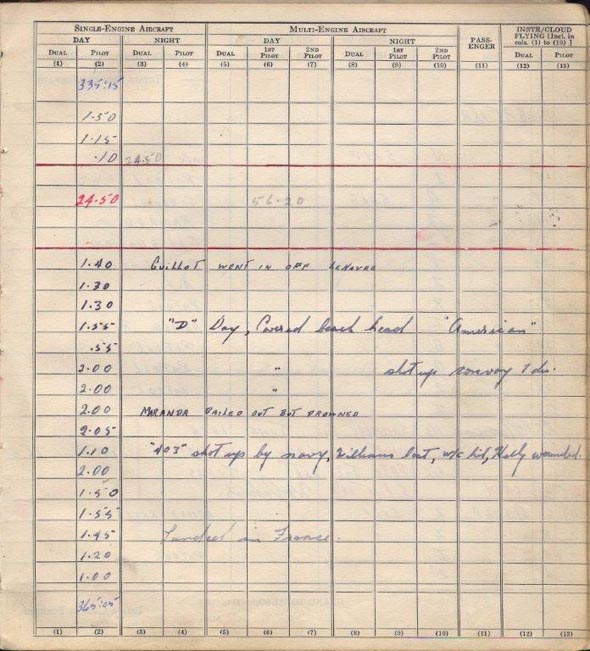 SINGLE-ENGINE AIRCRAFT MULTI-ENGINE AIRCRAFT PASS-ENGER INSTR/CLOUD FLYING [Incl. in cols. (1) to (10) ]
DAY NIGHT DAY NIGHT
DUAL PILOT DUAL PILOT DUAL 1ST PILOT 2ND PILOT DUAL 1ST PILOT 2ND PILOT DUAL PILOT
(1) (2) (3) (4) (5) (6) (7) (8) (9) (10) (11) (12) (13)
335:15
1.50
1.15
.10 24.50
24.50 56.20
1.40 GUILLOT WENT IN OFF LEHAVRE
1.30
1.30
1.55 "D" Day, Covered beach head "American"
.55
2.00 " shot up convoy
2.00 "
2.00 MIRANDA BAILED OUT BUT DROWNED
2.05
1.10 "403" shot up by navy, Williams lost, w/c hit, Kelly wounded.
2.00
1.50
1.55
1.45 Landed in France.
1.20
1.00
365:05
(1) (2) (3) (4) (5) (6) (7) (8) (9) (10) (11) (12) (13)